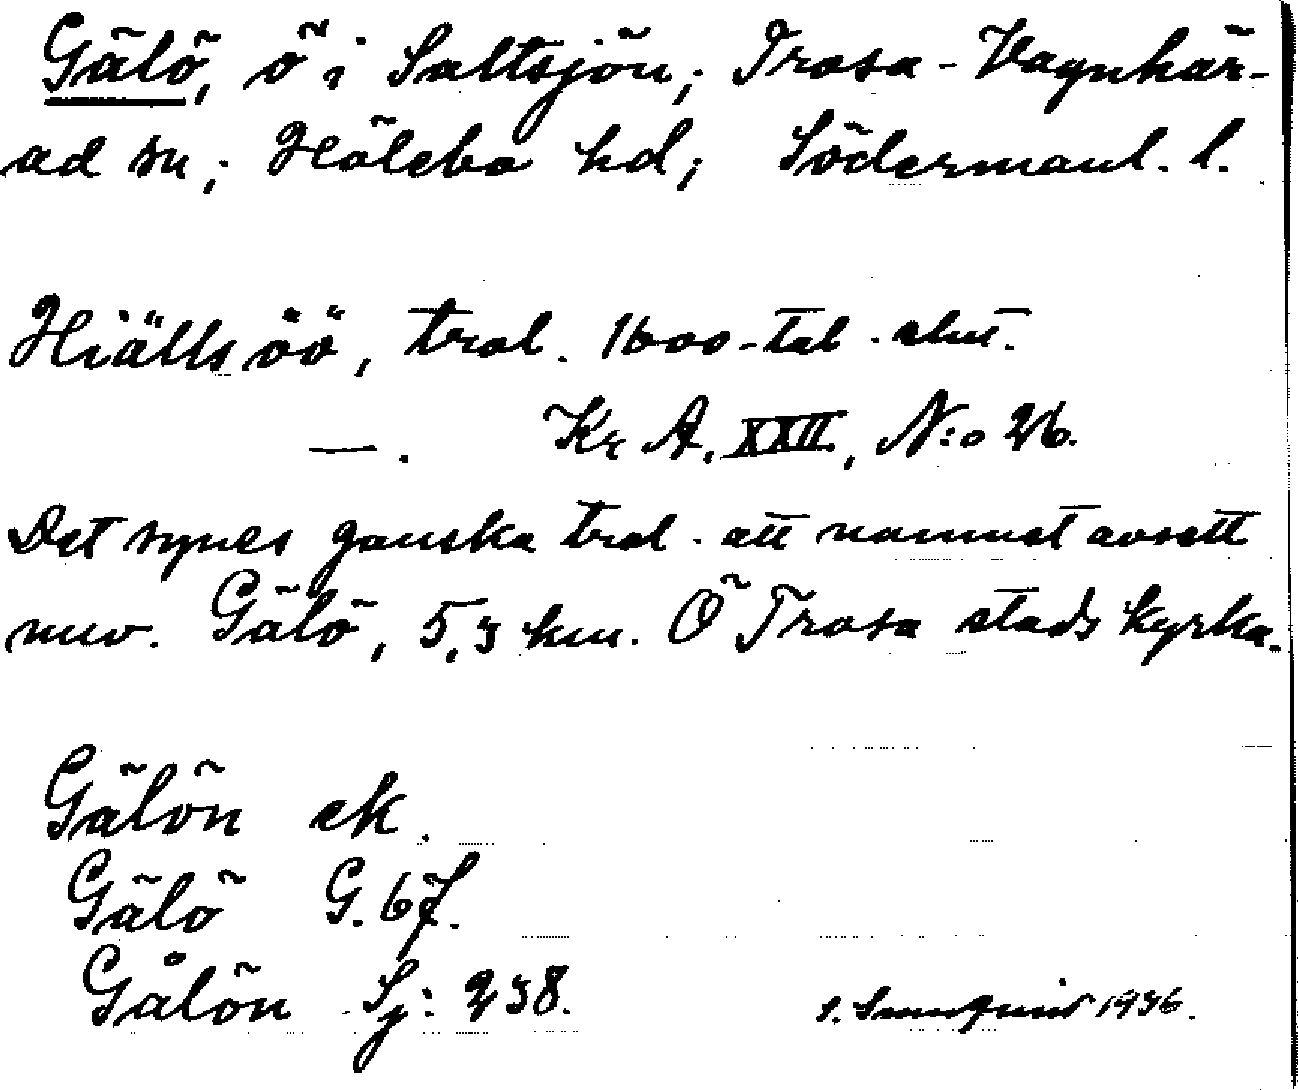 Gälö, ö i Saltsjön; Trosa-Vagnhär-
ad sn; Hölebo hd; Södermanl. l.
Hiälls öö, trol. 1600-tal. slut.
—. Kr A. XXII, N:o 26.
Det synes ganska trol. att namnet avsett
nuv. Gälö, 5,3 km. Ö Trosa stads kyrka.
Gälön ek.
Gälö G. 67.
Gålön Sj: 238.
1936.